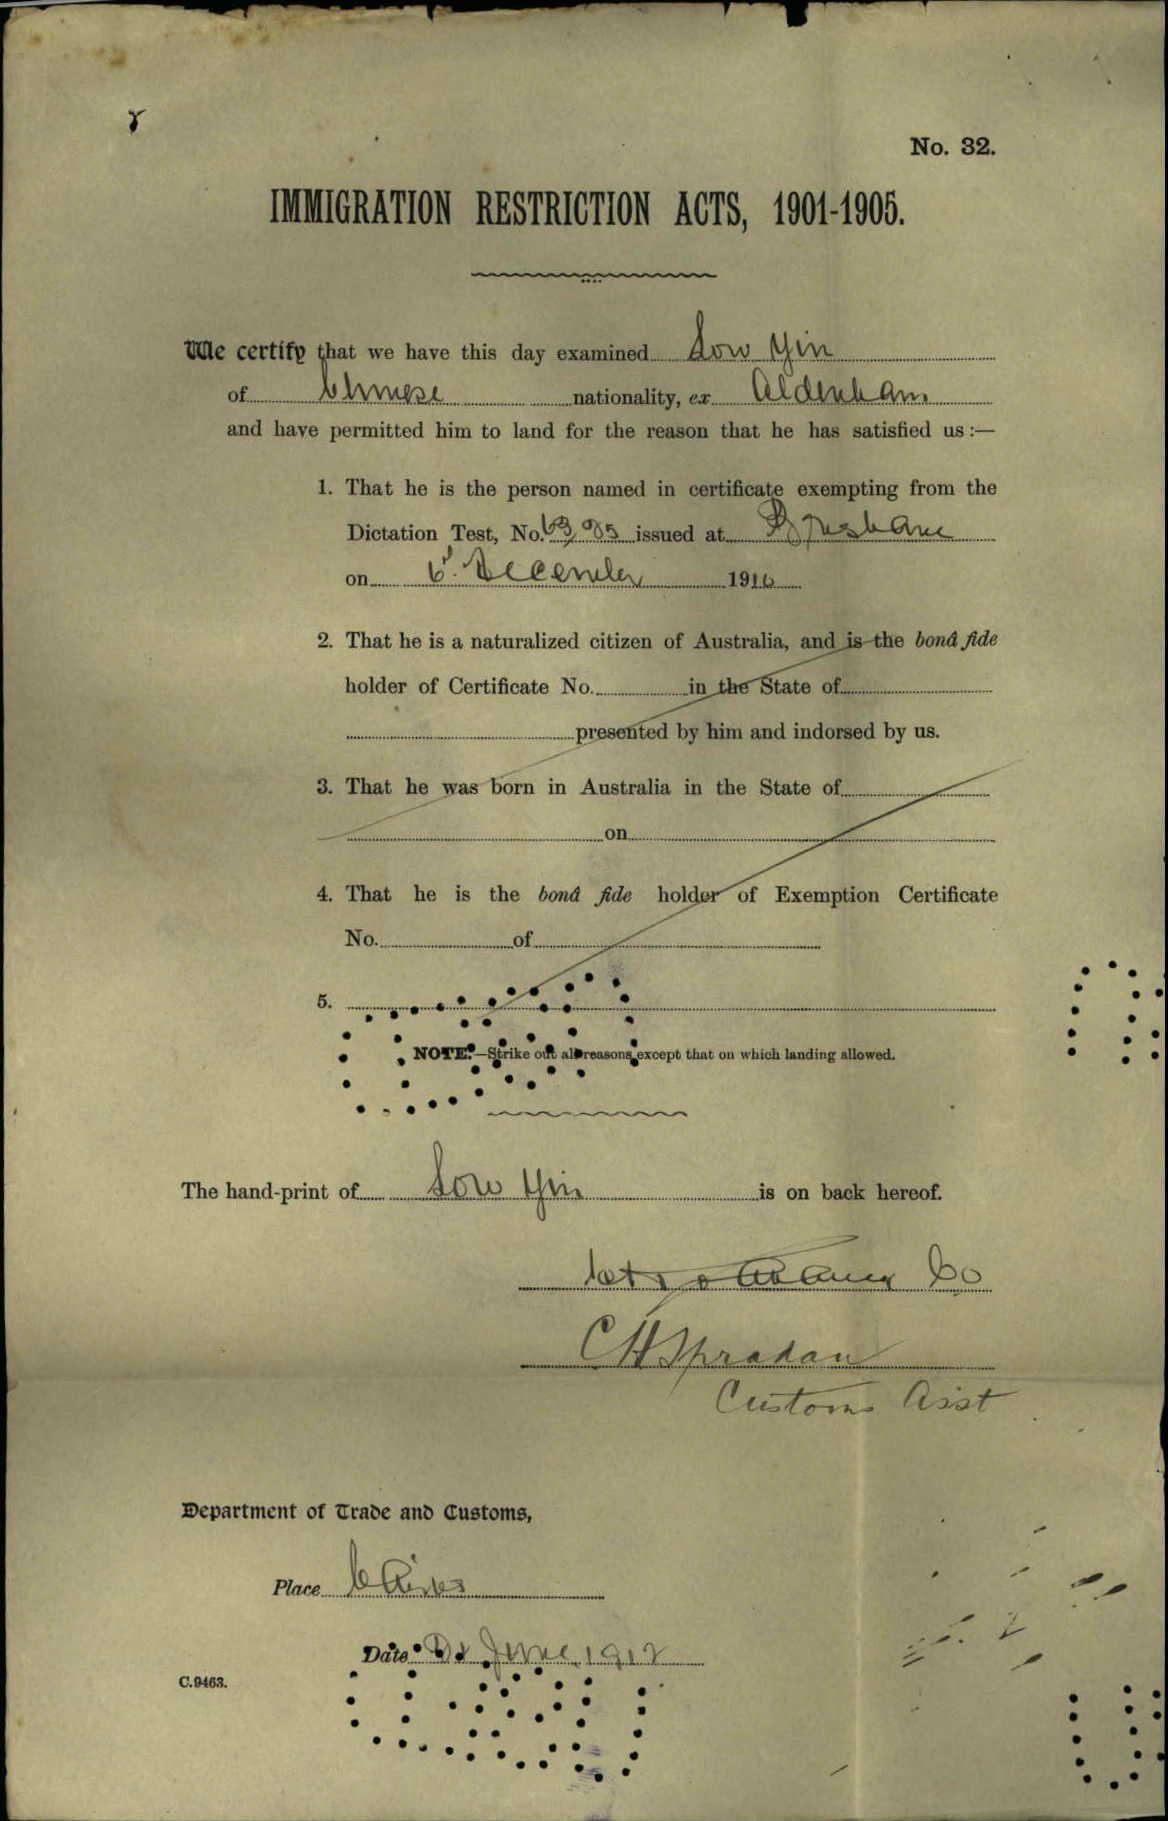 No. 32.
IMMIGRATION RESTRICTION ACTS, 1901-1905.
We certify that we have this day examined Sow Yin
of Chinese nationality, ex Aldenham
and have permitted him to land for the reason that he has satisfied us :—
1. That he is the person named in certificate exempting from the
Dictation Test, No. issued at Brisbane
on 6th December 1910
2. That he is a naturalized citizen of Australia, and is the bonâ fide
holder of Certificate No. in the State of
presented by him and indorsed by us.
3. That he was born in Australia in the State of
on
4. That he is the bonâ fide holder of Exemption Certificate
No. of
5.
NOTE.—Strike out all reasons except that on which landing allowed.
The hand-print of Sow Yin is on back hereof.
Co
C H
Customs Asst
Department of Trade and Customs,
Place Cairns
Date June 1912
C.9463.